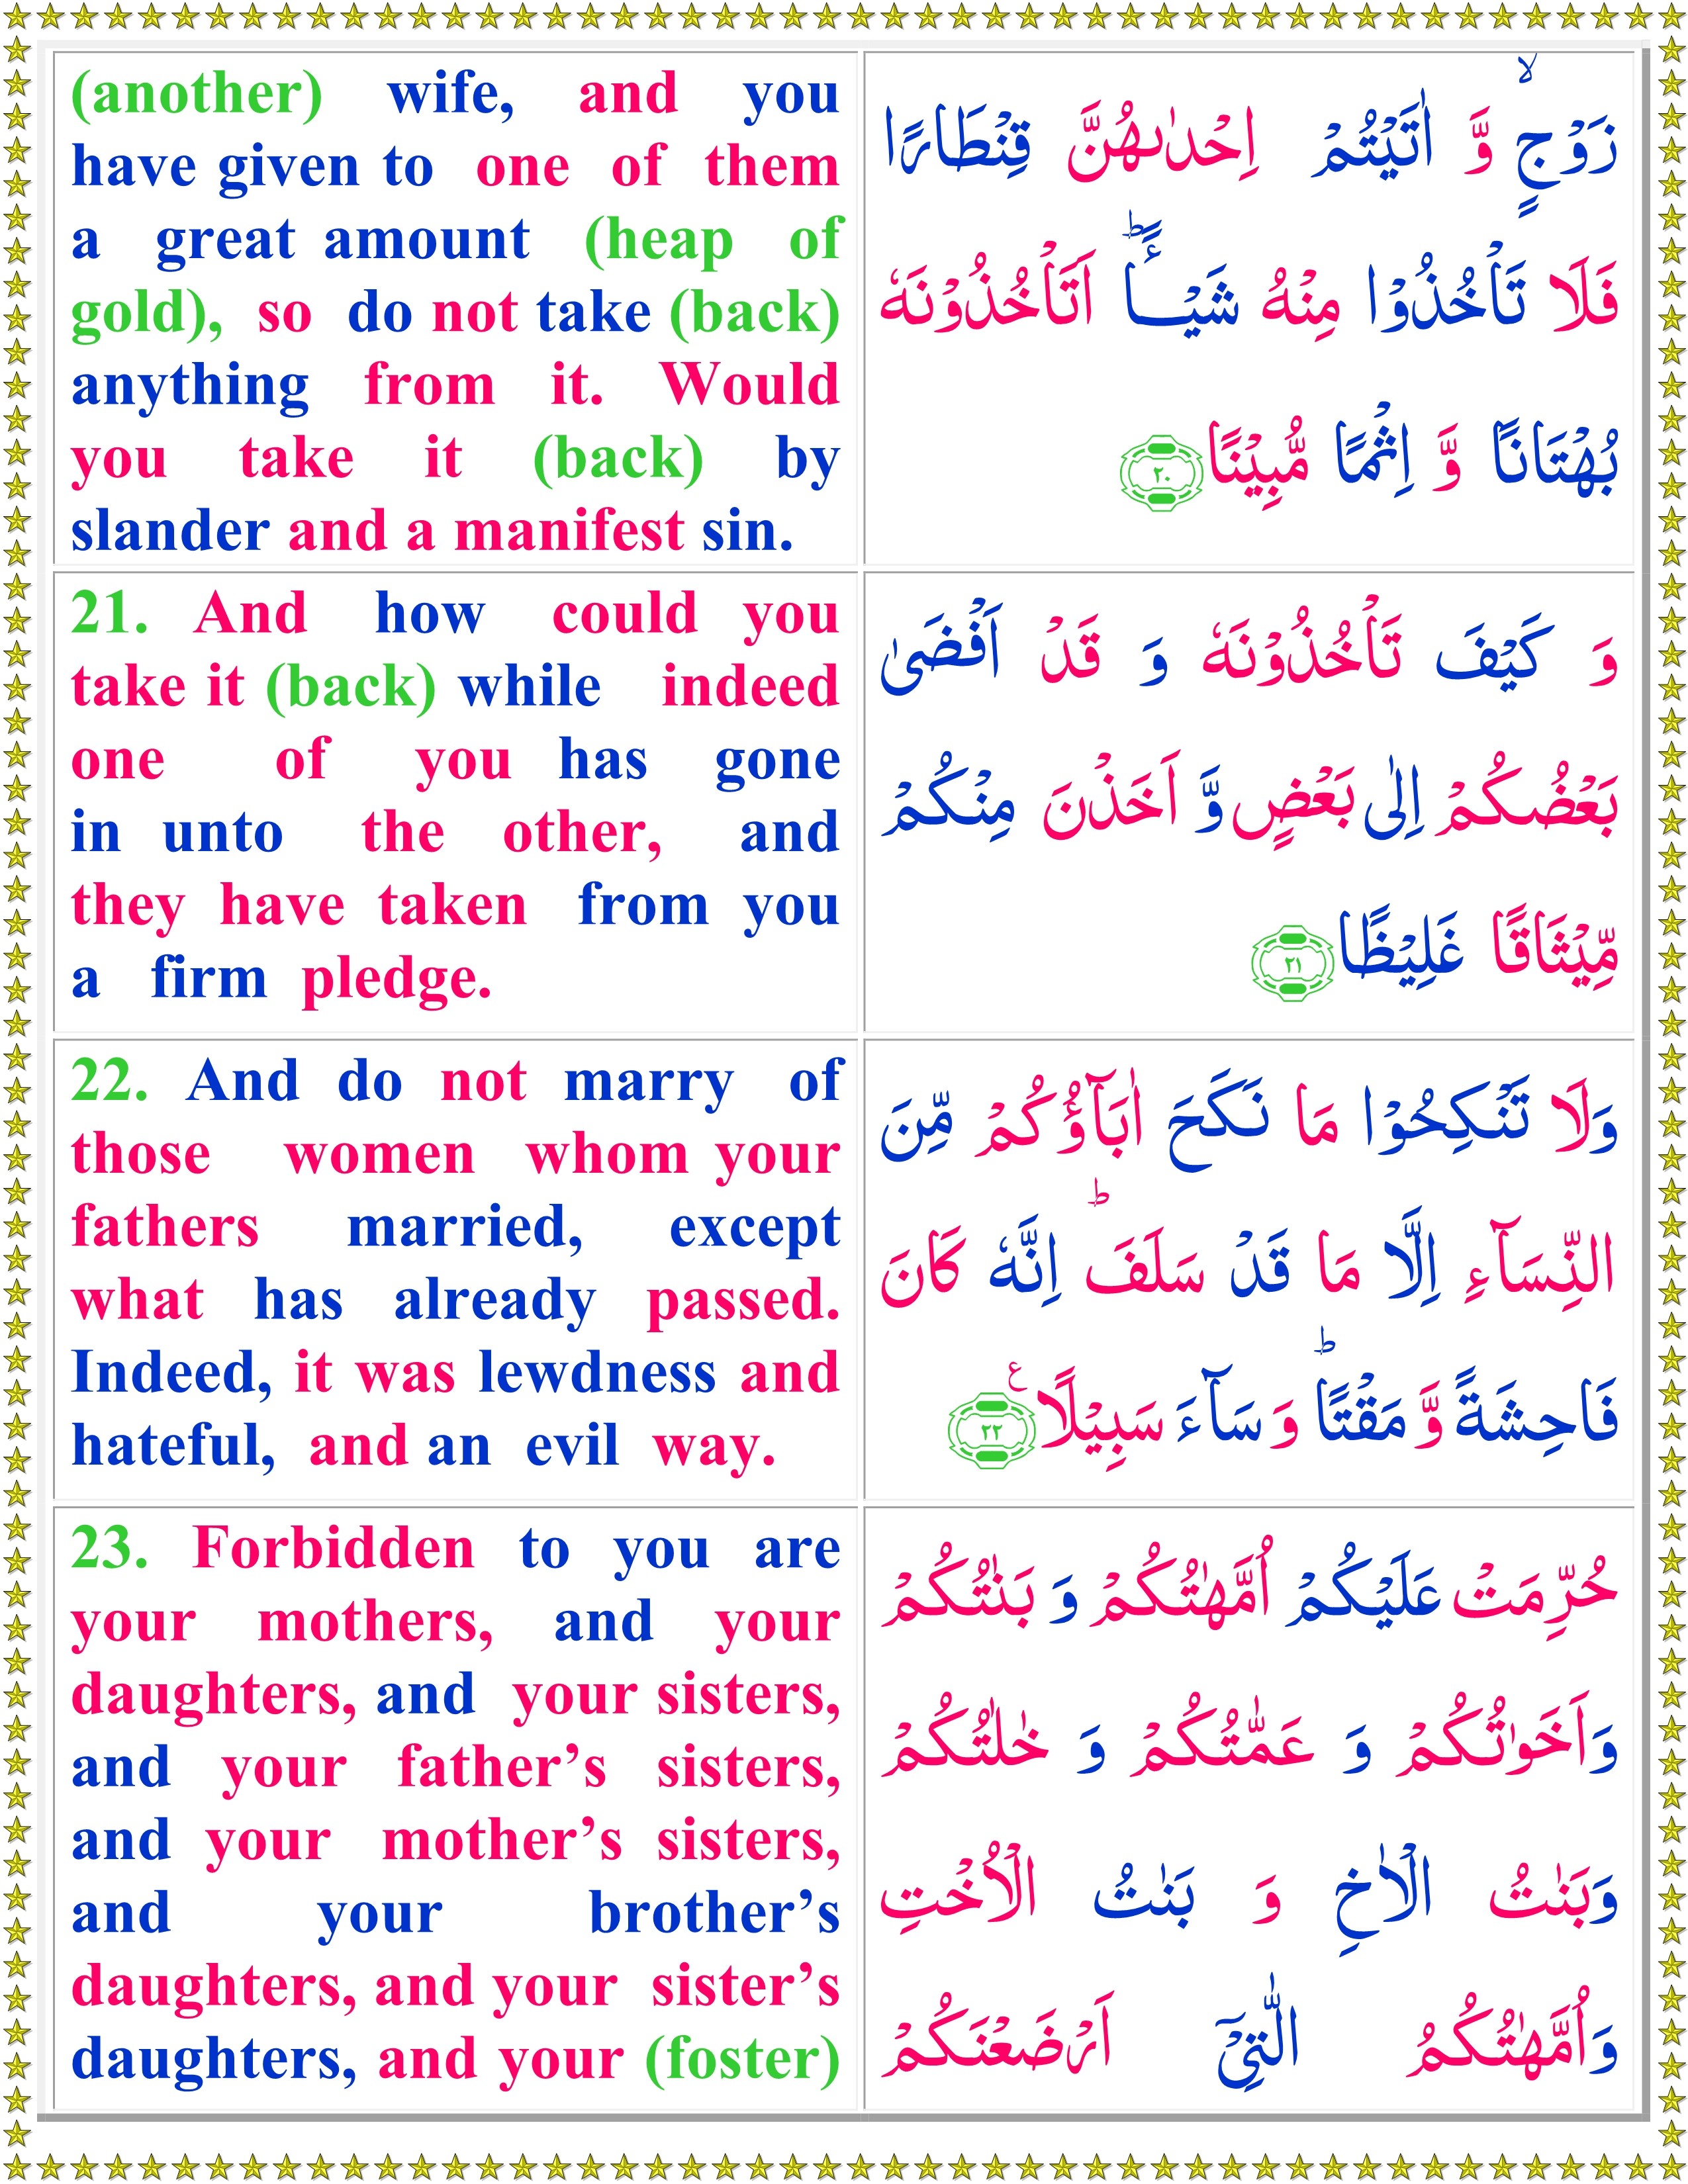 (another) wife, and you
have given to one of them
a great amount (heap of
gold), so do not take (back)
anything from it. Would
you take it (back) by
slander and a manifest sin.
زَوْجٍۙ وَّ اٰتَيْتُمْ اِحْدٰٮهُنَّ قِنْطَارًا
فَلَا تَاْخُذُوْا مِنْهُ شَيْــًٔاؕ اَتَاْخُذُوْنَهٗ
بُهْتَانًا وَّ اِثْمًا مُّبِيْنًا ﴿۲۰﴾
21. And how could you
take it (back) while indeed
one of you has gone
in unto the other, and
they have taken from you
a firm pledge.
وَ كَيْفَ تَاْخُذُوْنَهٗ وَ قَدْ اَفْضٰى
بَعْضُكُمْ اِلٰى بَعْضٍ وَّ اَخَذْنَ مِنْكُمْ
مِّيْثَاقًا غَلِيْظًا ﴿۲۱﴾
22. And do not marry of
those women whom your
fathers married, except
what has already passed.
Indeed, it was lewdness and
hateful, and an evil way.
وَلَا تَنْكِحُوْا مَا نَكَحَ اٰبَآؤُكُمْ مِّنَ
النِّسَآءِ اِلَّا مَا قَدْ سَلَفَؕ اِنَّهٗ كَانَ
فَاحِشَةً وَّ مَقْتًاؕ وَ سَآءَ سَبِيْلًاع ﴿۲۲﴾
23. Forbidden to you are
your mothers, and your
daughters, and your sisters,
and your father’s sisters,
and your mother’s sisters,
and your brother’s
daughters, and your sister’s
daughters, and your (foster)
حُرِّمَتْ عَلَيْكُمْ اُمَّهٰتُكُمْ وَ بَنٰتُكُمْ
وَاَخَوٰتُكُمْ وَ عَمّٰتُكُمْ وَ خٰلٰتُكُمْ
وَبَنٰتُ الْاَخِ وَ بَنٰتُ الْاُخْتِ
وَاُمَّهٰتُكُمُ الّٰتِىْۤ اَرْضَعْنَكُمْ